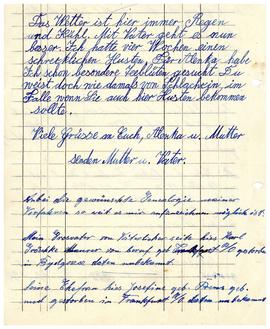 Das Wetter ist hier immer Regen
und Kühl. Mit Vater geht es nun
besser. Ich hatte vier Wochen einen
schrecklichen Husten, Für Alenka habe
Ich schon besondere gesucht. Du
weist doch wie damals von im
Falle wenn Sie auch hier Husten bekommen
sollte.
Viele Grüsse an Euch, Alenka u. Mutter
senden Mutter u. Vater.
Anbei die gewünschte Genealogie meiner
Vorfahren so weit es mir aufzeichnen möglich ist.
Mein Grossvater von Väterlicher seite hies Karl
von beruf gest. Frankfurt a/O gestorben
in daten unbekannt.
Seine Ehefrau hies Josefine geb.
und gestorben in Frankfurt a/O daten unbekannt